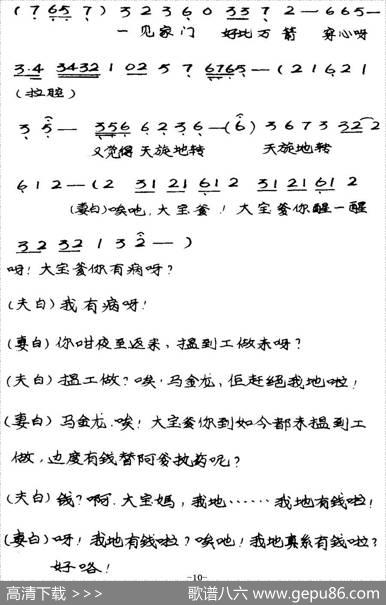 (7 6 5 7) 3 2 3 6 0 3 3 7 2 — 6 6 5 —
一见家门 好比万箭 穿心呀
3·4 3432 1 02 5 7 6765 — (2 1 6 2 1
(拉腔)
3 5 — 356 6 2 3 6 — (6) 3 6 7 3 32 2
又觉得 天旋地转 天旋地转
6 1 2 — (2 31 21 61 2 31 21 61 2
(妻白)唉吔,大宝爹!大宝爹你醒一醒
32 32 1 3 2 — )
呀!大宝爹你有病呀?
(夫白)我有病呀!
(妻白)你咁夜至返来,揾到工做未呀?
(夫白)揾工做?唉,马金龙,佢赶绝我地啦!
(妻白)马金龙.唉!大宝爹你到如今都未揾到工
做,边度有钱替阿爹执药呢?
(夫白)钱?啊.大宝妈,我地……我地有钱啦!
(妻白)呀!我地有钱啦?唉吔!我地真系有钱啦?
好咯!
-10-
高清下载 >>> 歌谱八六 www.gepu86.com